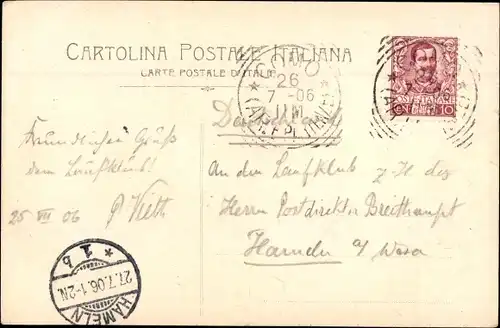 CARTOLINA POSTALE ITALIANA
CARTE POSTALE D'ITALIE
COMO
26
7 - 06
11 M
POSTE ITALIANE
CENT. 10
Deutschland
Freundlichen Gruß
dem Laufklub!
25 VII 06 P Vieth
An den Laufklub z H des
Herrn Postdirektor Breithaupt
Hameln a/ Weser
* 1 b
27.7.06.1-2N.
HAMELN